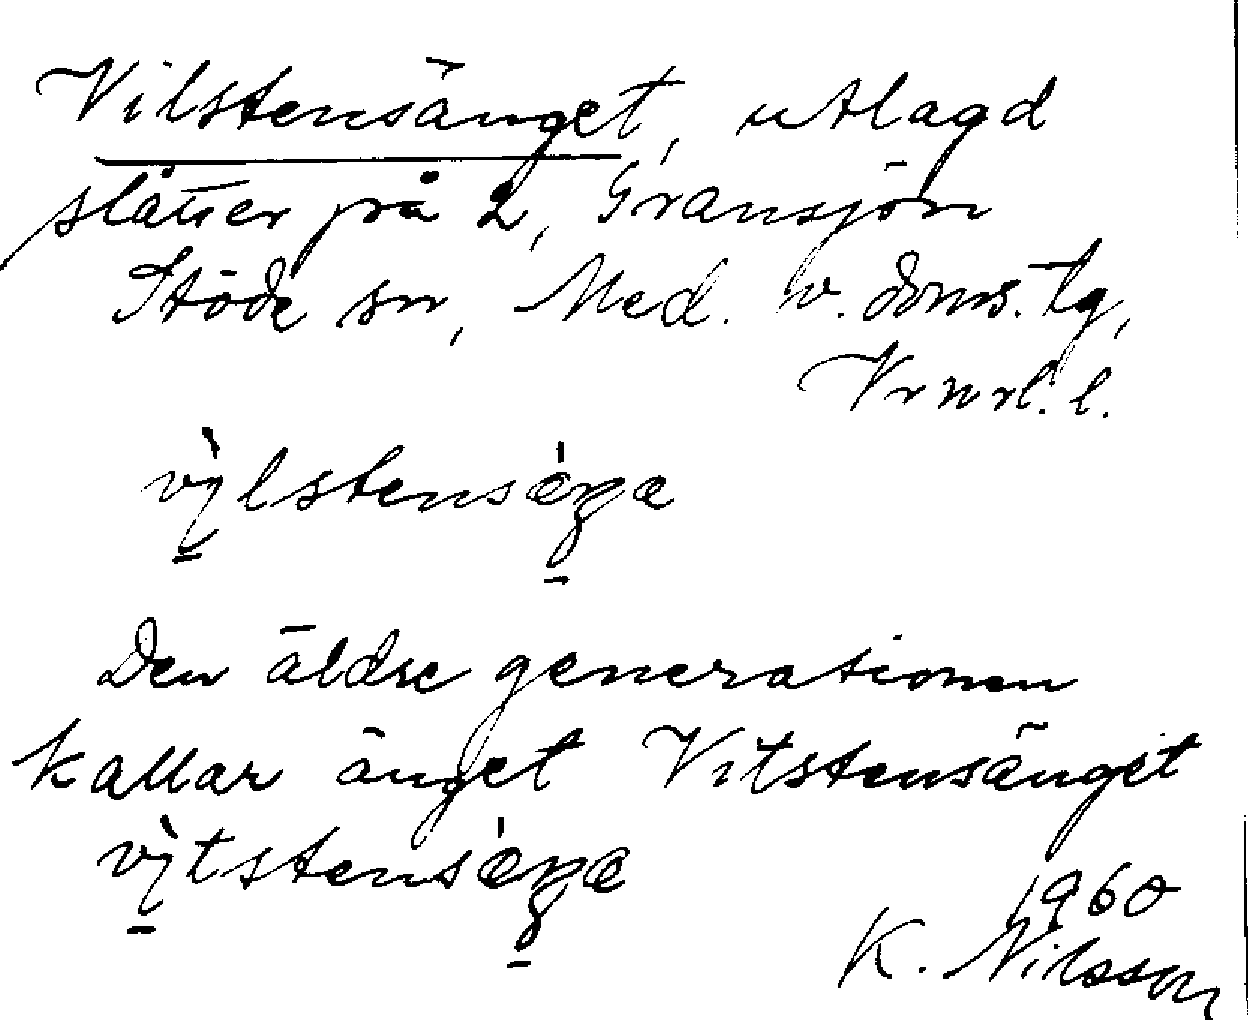 Vilstensänget, utlagd
slåtter på 2, Gransjön
Stöde sn, Med. v. doms. tg,
Vrnrl. l.
vìlstensǽŋa
Den äldre generationen
kallar änget Vitstensänget
vìtstensǽŋa
1960
K. Nilsson